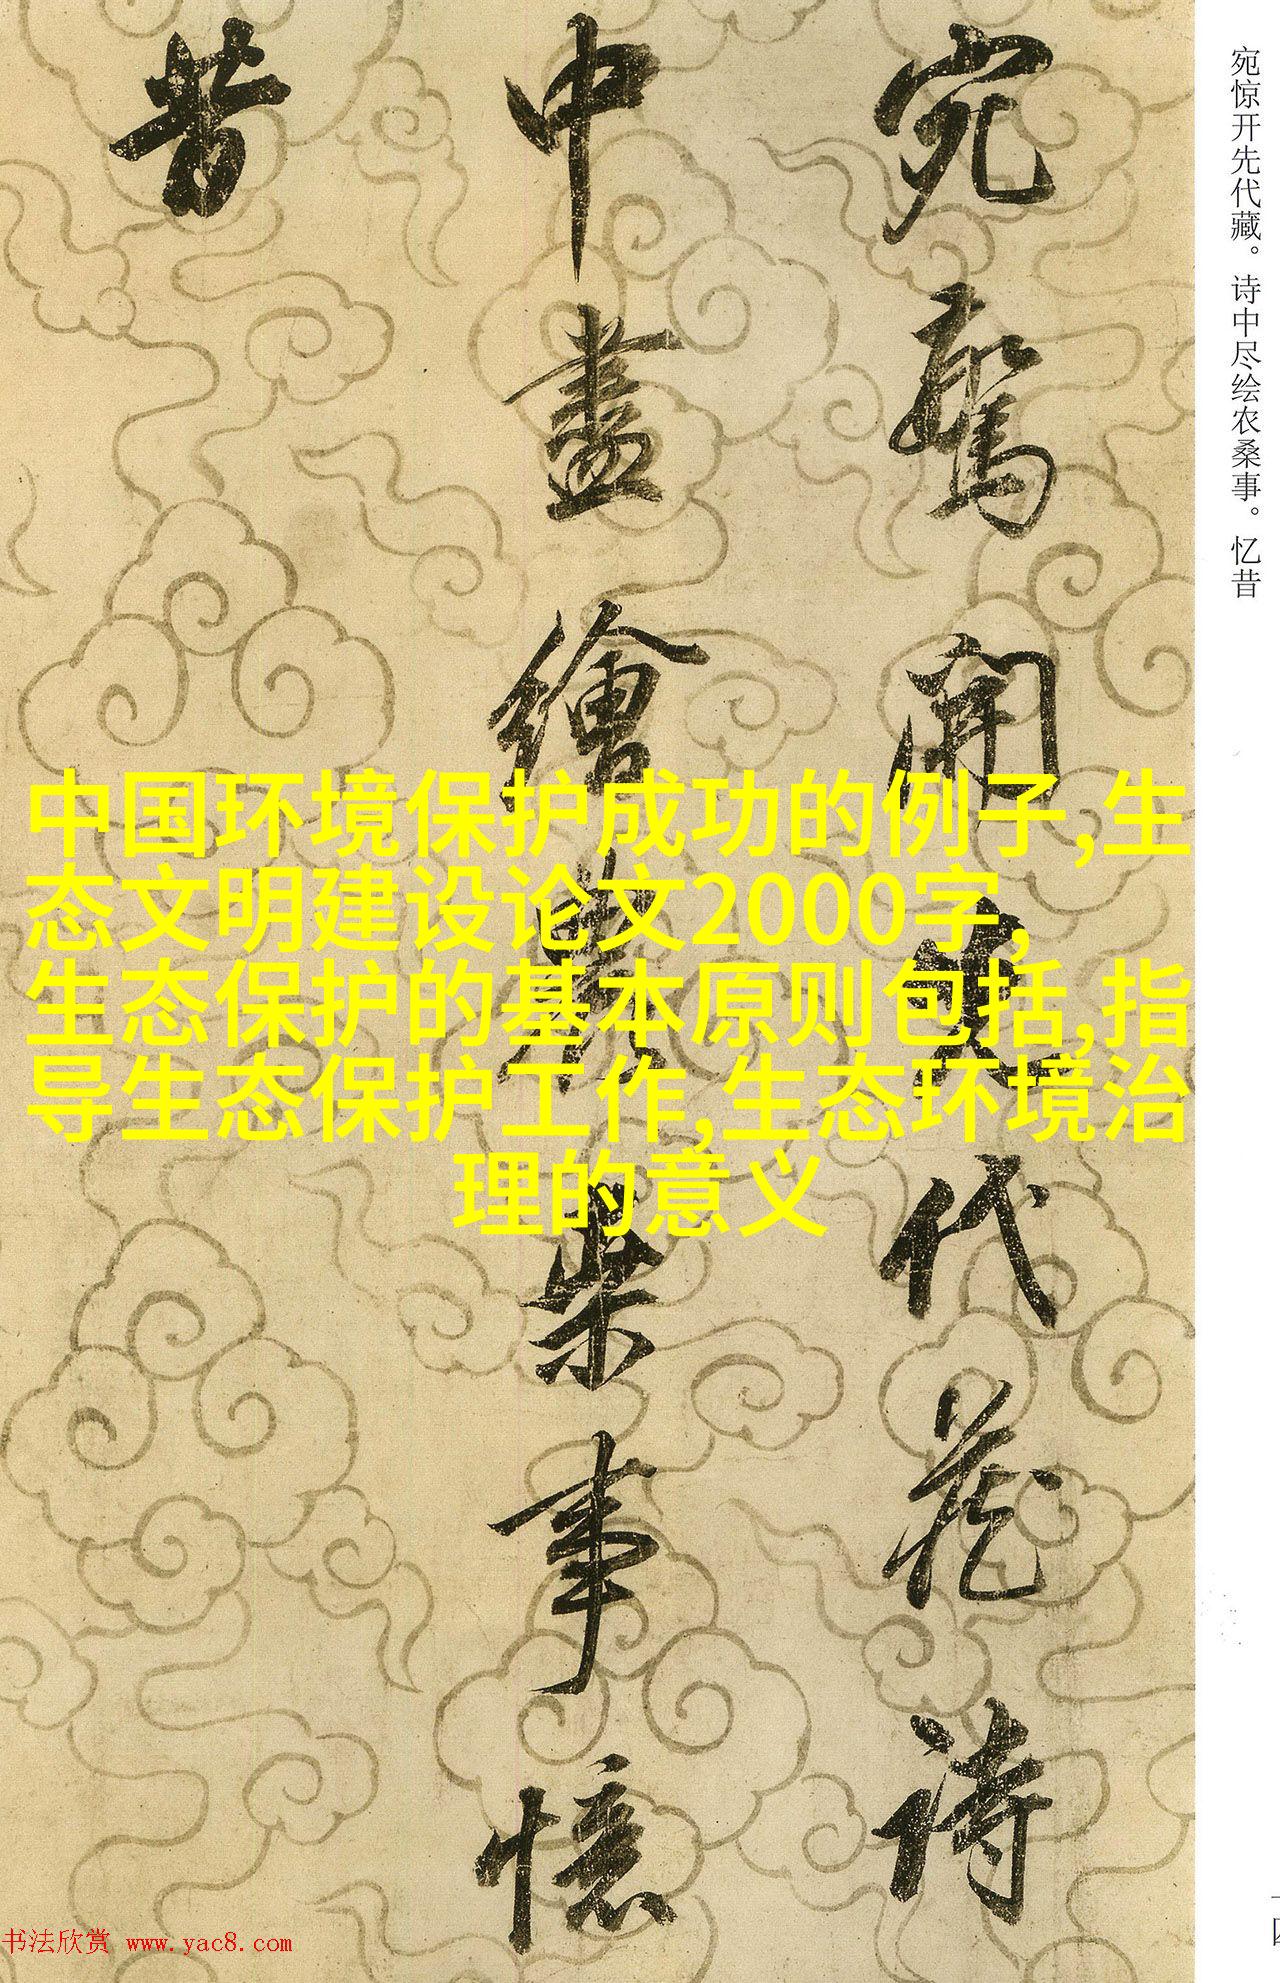 宛驚開先代藏詩
中盡繪農桒事憶
昔
宛惊开先代藏。诗中尽绘农桑事。忆昔
中国环境保护成功的例子,生
态文明建设论文2000字,
生态保护的基本原则包括,指
导生态保护工作,生态环境治
理的意义
书法欣赏 www.yac8.com